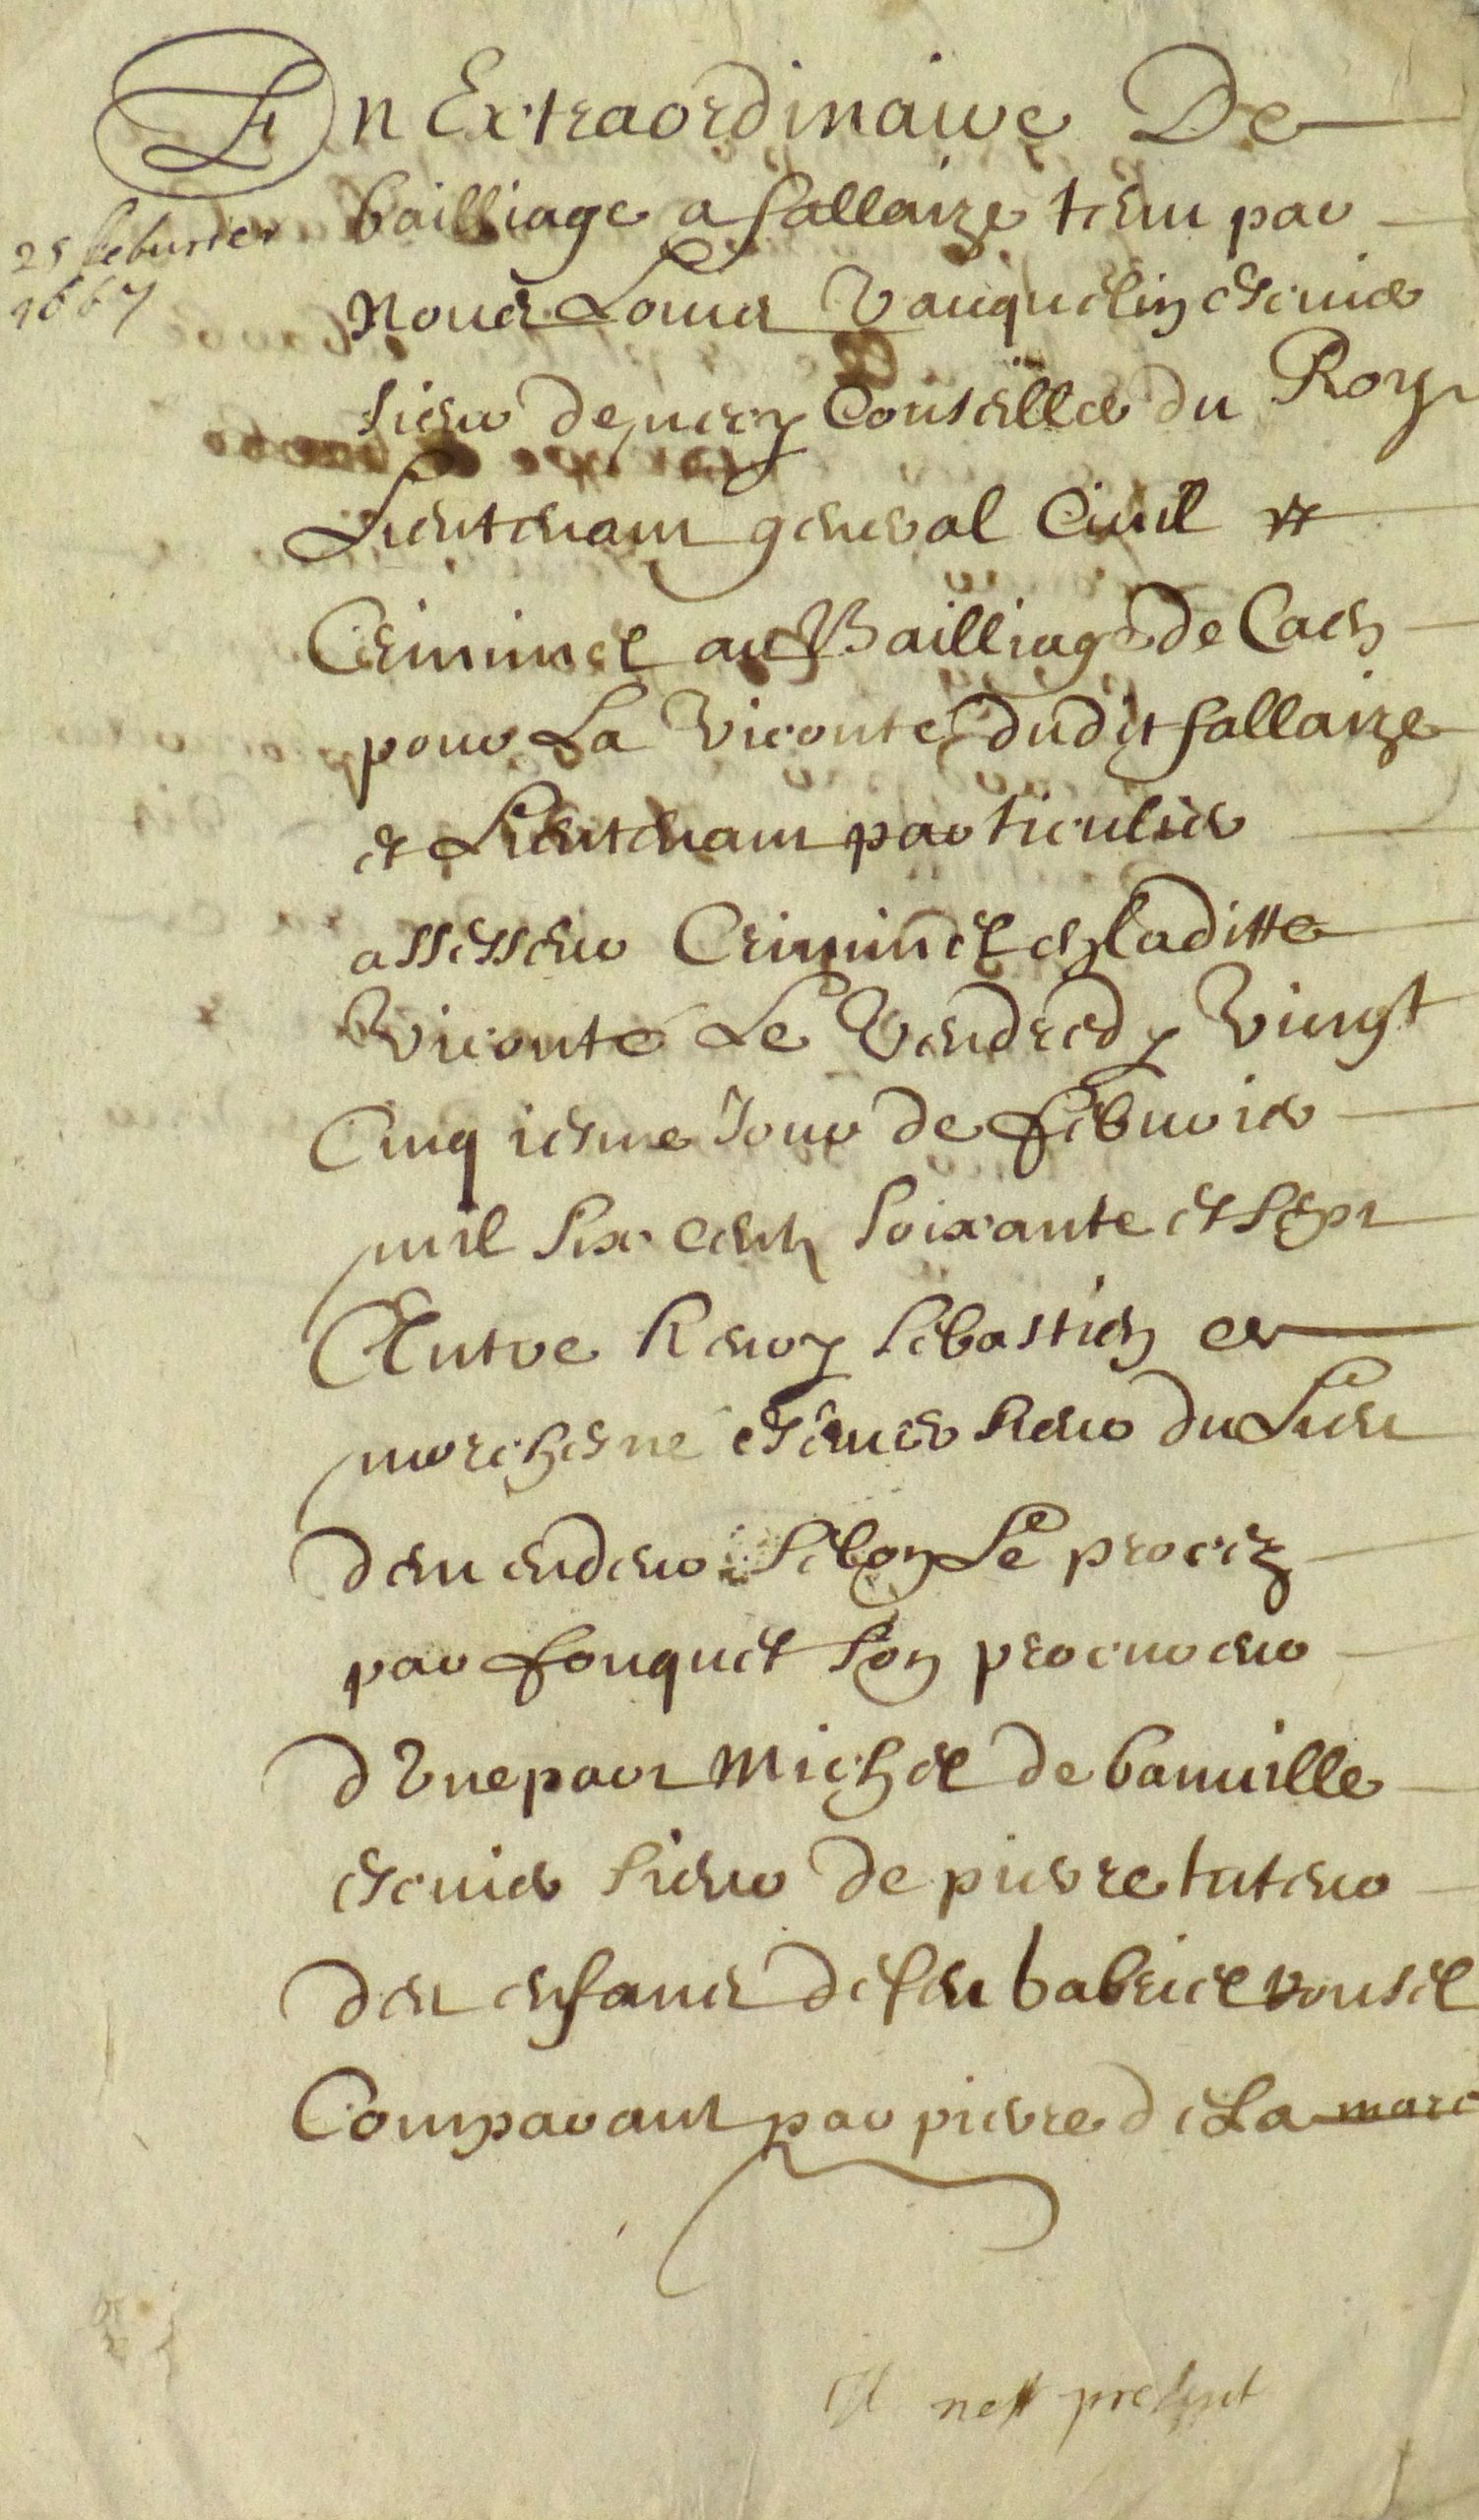 En Extraordinaire De
bailliage a fallaize tenu par
25 feburier
1667
Nous Louis Vauquelin Escuier
sieur de necy Conseiller du Roy
Lieutenant general Ciuil et
Criminel au Bailliage de Caen
pour La Viconte dudit fallaize
et Lieutenant particulier
assesseur Criminel en laditte
Viconté Le Vendredy Vingt
Cinqiesme Jour de feburier
mil six centz soixante et sept
Entre Henry sebastien
morchesne Escuier sieur du
demandeur selon Le procez
par fouquet son procureur
d'Vne part Michel de banuille
escuier sieur de pierre tuteur
des enfans de feu Gabriel rousel
Comparant par pierre de La mare
Il nest present